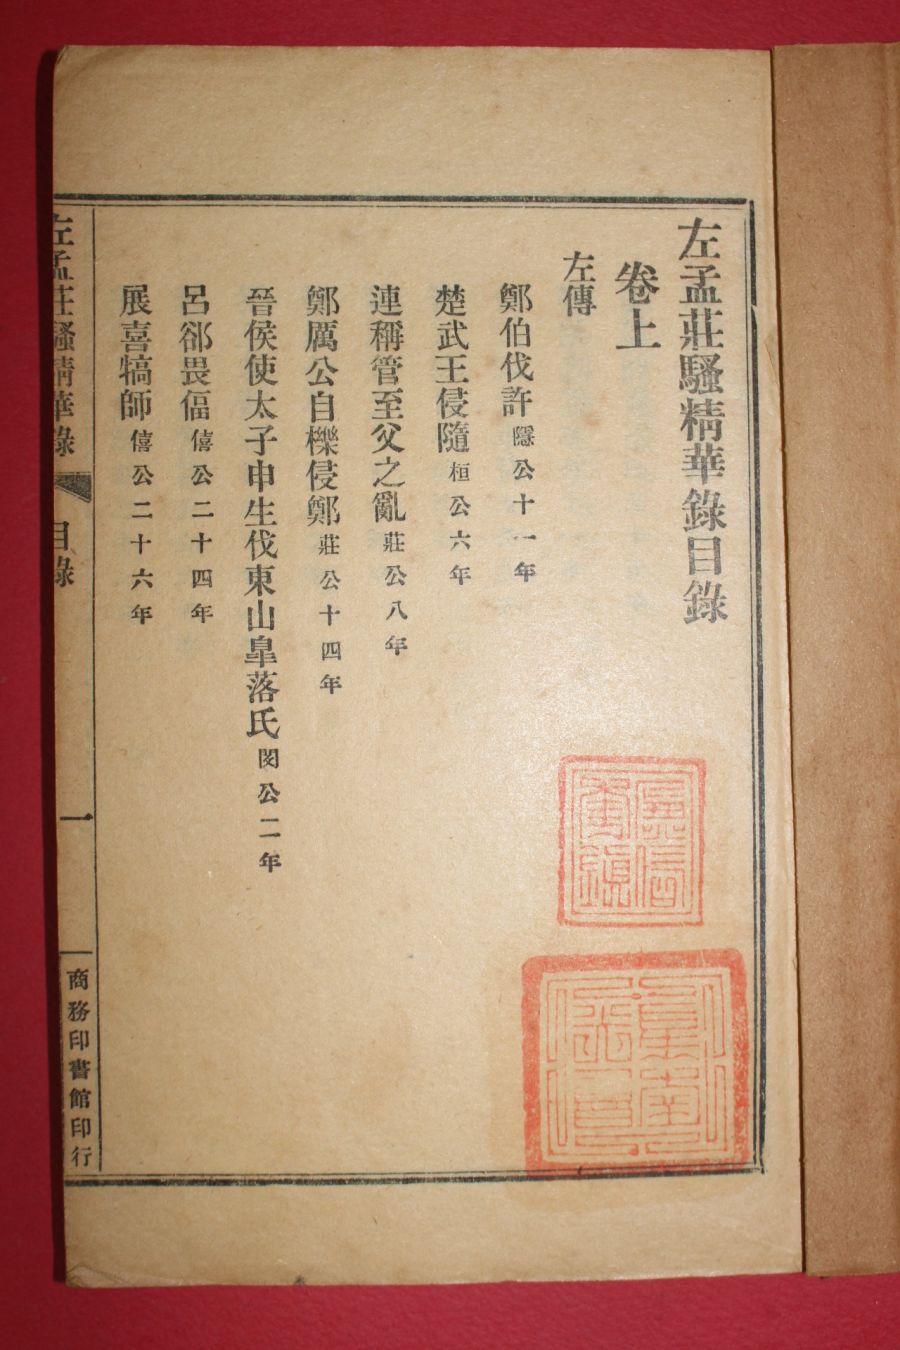 左孟莊騷精華錄目錄
卷上
左傳
鄭伯伐許 隱公十一年
楚武王侵隨 桓公六年
連稱管至父之亂 莊公八年
鄭厲公自櫟侵鄭 莊公十四年
晉侯使太子申生伐東山皐落氏 閔公二年
呂郤畏偪 僖公二十四年
展喜犒師 僖公二十六年
左孟莊騷精華錄 目錄 一 商務印書館印行